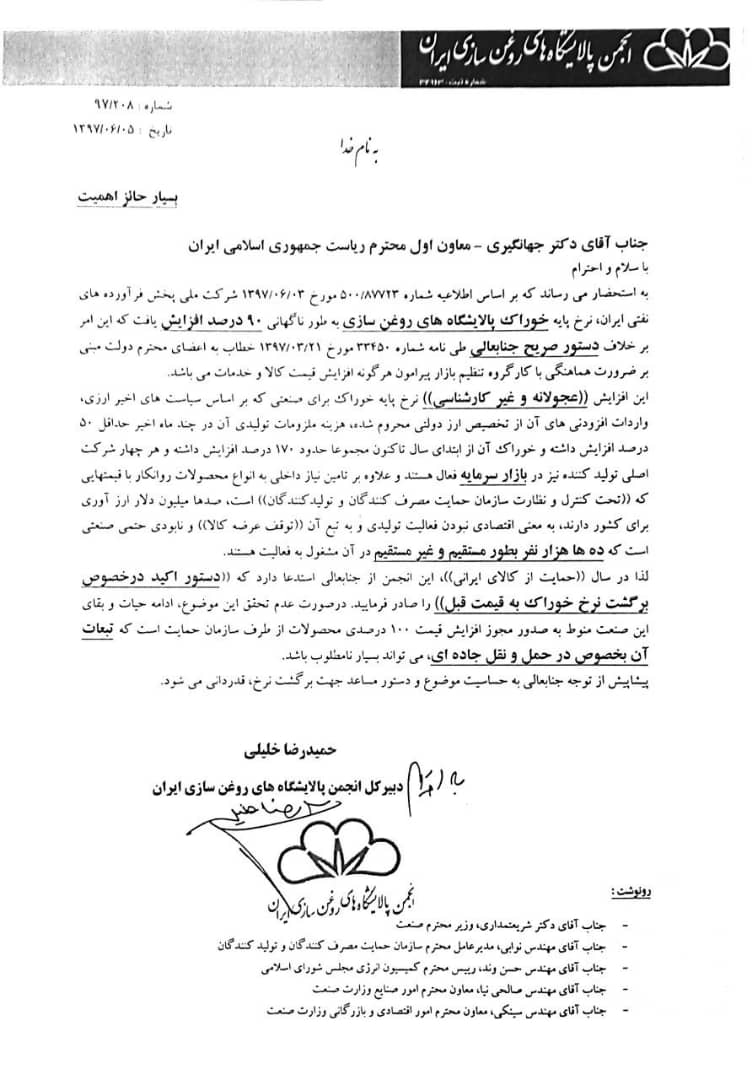 انجمن پالایشگاه‌های روغن سازی ایران
شماره : ۹۷/۲۰۸
تاریخ : ۱۳۹۷/۰۶/۰۵
به نام خدا
بسیار حائز اهمیت
جناب آقای دکتر جهانگیری – معاون اول محترم ریاست جمهوری اسلامی ایران
با سلام و احترام
به استحضار می رساند که بر اساس اطلاعیه شماره ۵۰۰/۸۷۷۲۳ مورخ ۱۳۹۷/۰۶/۰۳ شرکت ملی پخش فرآورده های
نفتی ایران، نرخ پایه خوراک پالایشگاه های روغن سازی به طور ناگهانی ۹۰ درصد افزایش یافت که این امر
بر خلاف دستور صریح جنابعالی طی نامه شماره ۳۳۴۵۰ مورخ ۱۳۹۷/۰۳/۲۱ خطاب به اعضای محترم دولت مبنی
بر ضرورت هماهنگی با کارگروه تنظیم بازار پیرامون هرگونه افزایش قیمت کالا و خدمات می باشد.
این افزایش ((عجولانه و غیر کارشناسی)) نرخ پایه خوراک برای صنعتی که بر اساس سیاست های اخیر ارزی،
واردات افزودنی های آن از تخصیص ارز دولتی محروم شده، هزینه ملزومات تولیدی آن در چند ماه اخیر حداقل ۵۰
درصد افزایش داشته و خوراک آن از ابتدای سال تاکنون مجموعا حدود ۱۷۰ درصد افزایش داشته و هر چهار شرکت
اصلی تولید کننده نیز در بازار سرمایه فعال هستند و علاوه بر تامین نیاز داخلی به انواع محصولات روانکار با قیمتهایی
که ((تحت کنترل و نظارت سازمان حمایت مصرف کنندگان و تولیدکنندگان)) است، صدها میلیون دلار ارز آوری
برای کشور دارند، به معنی اقتصادی نبودن فعالیت تولیدی و به تبع آن ((توقف عرضه کالا)) و نابودی حتمی صنعتی
است که ده ها هزار نفر بطور مستقیم و غیر مستقیم در آن مشغول به فعالیت هستند.
لذا در سال ((حمایت از کالای ایرانی))، این انجمن از جنابعالی استدعا دارد که ((دستور اکید درخصوص
برگشت نرخ خوراک به قیمت قبل)) را صادر فرمایید. درصورت عدم تحقق این موضوع، ادامه حیات و بقای
این صنعت منوط به صدور مجوز افزایش قیمت ۱۰۰ درصدی محصولات از طرف سازمان حمایت است که تبعات
آن بخصوص در حمل و نقل جاده ای، می تواند بسیار نامطلوب باشد.
پیشاپیش از توجه جنابعالی به حساسیت موضوع و دستور مساعد جهت برگشت نرخ، قدردانی می شود.
حمیدرضا خلیلی
دبیرکل انجمن پالایشگاه های روغن سازی ایران
انجمن پالایشگاه‌های روغن سازی ایران
رونوشت :
- جناب آقای دکتر شریعتمداری، وزیر محترم صنعت
- جناب آقای مهندس نوابی، مدیرعامل محترم سازمان حمایت مصرف کنندگان و تولید کنندگان
- جناب آقای مهندس حسن وند، رییس محترم کمیسیون انرژی مجلس شورای اسلامی
- جناب آقای مهندس صالحی نیا، معاون محترم امور صنایع وزارت صنعت
- جناب آقای مهندس سینکی، معاون محترم امور اقتصادی و بازرگانی وزارت صنعت